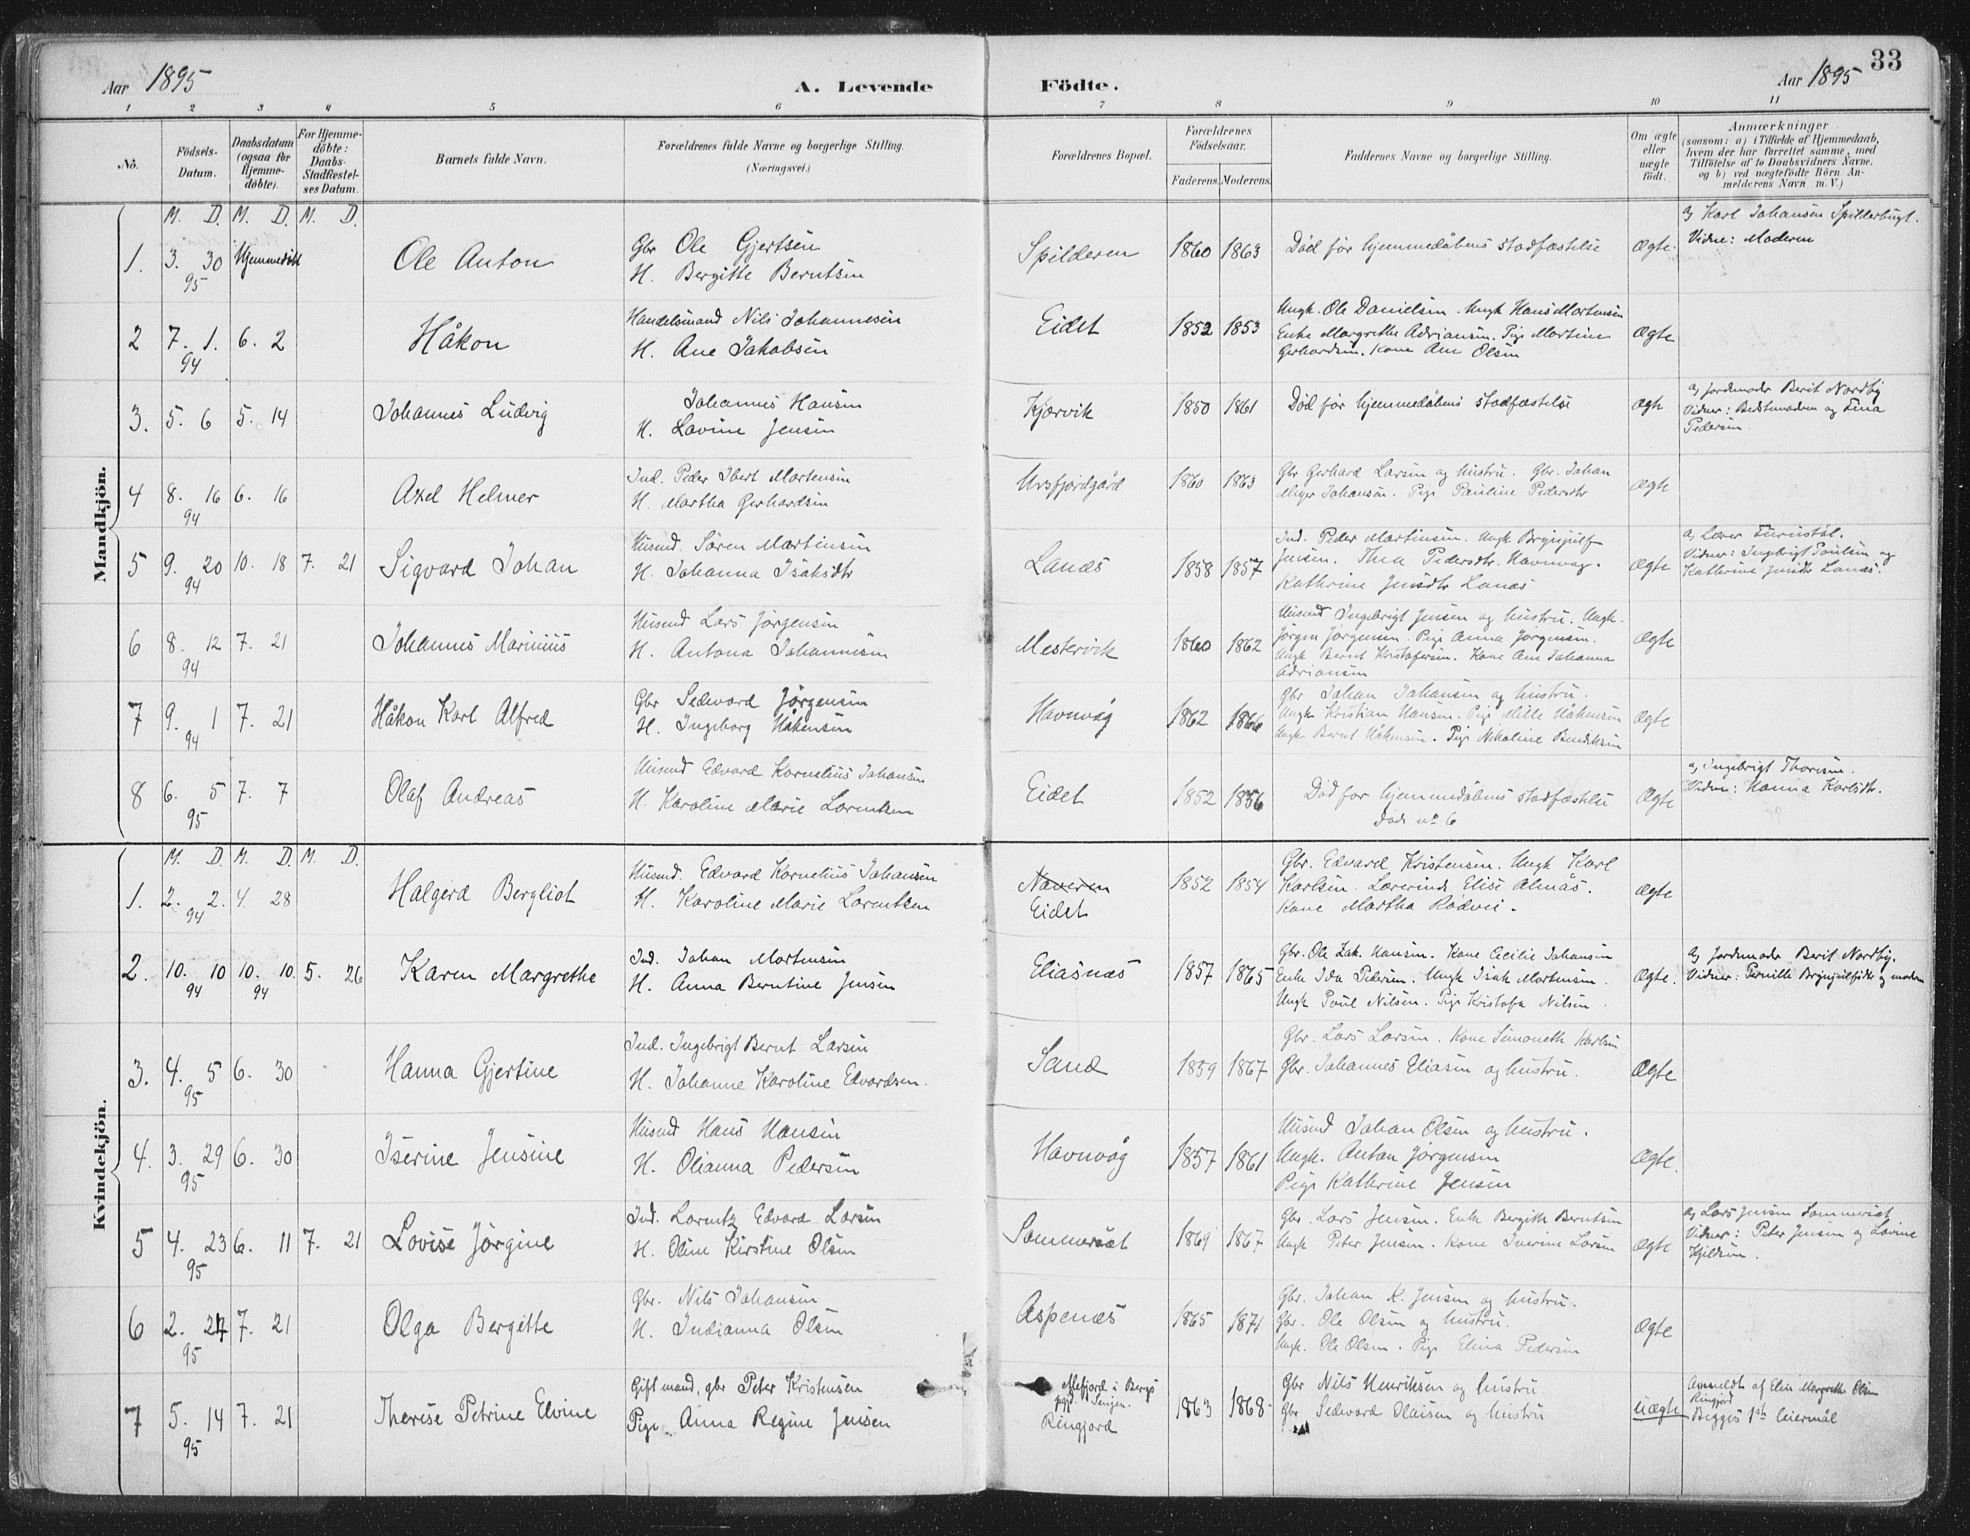 Aar 1895
A. Levende
Födte.
Aar 1895
33
1 2 3 4 5 6 7 8 9 10 11
No.
Födsels-
Datum.
Daabsdatum
(ogsaa for
Hjemme-
döbte).
For Hjemme-
döbte:
Daabs-
Stadfæstel-
ses Datum.
Barnets fulde Navn.
Forældrenes fulde Navne og borgerlige Stilling.
(Næringsvei.)
Forældrenes Bopæl.
Forældrenes
Födselsaar.
Faderens. Moderens.
Faddernes Navne og borgerlige Stilling.
Om ægte
eller
uægte
födt.
Anmærkninger
(saasom: a) i Tilfælde af Hjemmedaab,
hvem der har forrettet samme, med
Tilföielse af to Daabsvidners Navne.
og b) ved uægtefödte Börn An-
melderens Navn m. V.)
Mandkjön.
M. D. M. D. M. D.
1. 3. 30 Hjemmedøbt
95
Ole Anton
Gbr Ole Gjertsen
H. Bergitte Berntsen
Spilderen
1860 1863
Død før hjemmedåbens stadfæstelse
Ægte.
a, Karl Johansen Spilderbugt.
Vidne: Moderen
2 7. 1. 6. 2
94
Håkon
Handelsmand Nils Johannesen
H. Ane Jakobsen
Eidet
1852 1853
Ungk. Ole Danielsen. Ungk Hans Mortensen
Enke Margrethe Adriansen. Pige Martine
Gerhardsen. Kone Ane Olsen
Ægte
3. 5. 6 5. 14
Johannes Ludvig
Johannes Hansen
H. Lovine Jensen
Kjærvik
1850 1861
Død før hjemmedåbens stadfæstelse
Ægte
a, Jordemoder Berit Nordby
Vidner: Bedstemoderen og Lina
Pedersen
4 8. 16 6. 16
94
Axel Helmer
Ind. Peder Ibert Mortensen
H. Martha Gerhardsen
Ursfjordgård
1860 1863
Gbr Gerhard Larsen og hustru. Gbr. Johan
Meyer Johansen. Pige Pauline Pedersdtr
Ægte
5 9. 20 10. 18 7. 21
94
Sigvard Johan
Husmd. Søren Martinsen
H. Johanna Isaksdtr
Lanæs
1858 1857
Ind. Peder Martinsen. Ungk Brynjulf
Jensen. Thea Pedersdtr. Havnvåg.
Kathrine Jensdtr Lanæs
Ægte
a, Lærer Turistøl.
Vidner: Ingebrigt Poulsen og
Kathrine Jensdtr Lanæs.
6 8. 12 7. 21
94
Johannes Marinius
Husmd Lars Jørgensen
H. Antona Johannesen
Mestervik
1860 1862
Husmd Ingebrigt Jensen og hustru. Ungk.
Jørgen Jørgensen. Pige Anna Jørgensen.
Ungk Bernt Kristofersen. Kone Ane Johanna
Adriansen
Ægte
7 9. 1 7. 21
94
Håkon Karl Alfred
Gbr Sedevard Jørgensen
H. Ingeborg Håkensen
Havnvåg
1862 1866
Gbr Johan Johansen og hustru.
Ungk Kristian Hansen. Pige Mille Håkensen
Ungk Bernt Håkensen. Pige Nikoline Bendiksen
Ægte
8 6. 5 7. 7
95
Olaf Andreas
Husmd Edvard Kornelius Johansen
H. Karoline Marie Lorentsen
Eidet
1852 1856
Død før hjemmedåbens stadfæstelse
Døde no 6
Ægte
a, Ingebrigt Thoresen.
Vidne: Hanna Karlsdtr.
Kvindekjön.
M. D. M. D. M. D.
1. 2. 2. 4 28
94
Halgerd Bergliot
Husmd. Edvard Kornelius Johansen
H. Karoline Marie Lorentsen
Naveren
Eidet
1852 1854
Gbr. Edvard Kristensen. Ungk Karl
Karlsen. Lærerinde Elise Almås.
Kone Martha Rødvei.
Ægte
2. 10. 10 10. 10 5. 26
94 94
Karen Margrethe
Ind. Johan Mortensen
H. Anna Berntine Jensen
Eliasnæs
1857 1865
Gbr. Ole Zak. Hansen. Kone Cecilie Johansen
Enke Ida Pedersen. Ungk Isak Mortensen.
Ungk Poul Nilsen. Pige Kristofa Nilsen.
Ægte.
a, Jordemoder Berit Nordby.
Vidner: Pernille Brynjulfsdtr og moderen
3. 4. 5 6. 30
95
Hanna Gjertine
Ind. Ingebrigt Bernt Larsen
H. Johanne Karoline Edvardsen.
Sand
1859 1867
Gbr. Lars Larsen. Kone Simoneth Karlsen
Gbr. Johannes Eliasen og hustru.
Ægte
4. 3. 29 6. 30
95
Iserine Jensine
Husmd Hans Hansen
H. Olianna Pedersen
Havnvåg
1857 1861
Husmd Johan Olsen og hustru.
Ungk. Anton Jørgensen
Pige Kathrine Jensen
Ægte.
5 4. 23 6. 11 7. 21
95
Lovise Jørgine
Ind. Lorentz Edvard Larsen
H. Oline Kirstine Olsen
Sommersæt
1869 1867
Gbr. Lars Jensen. Enke Bergith Berntsen
Ungk Peter Jensen. Kone Iverine Larsen
Ægte
a, Lars Jensen Sommersæt
Vidner: Peter Jensen og Lovine
Kjildsen.
6 2. 27 7. 21
95
Olga Bergitte
Gbr. Nils Johansen
H. Indianna Olsen
Aspenæs
1865 1871
Gbr. Johan K. Jensen og hustru.
Gbr. Ole Olsen og hustru.
Ungk. Ole Olsen. Pige Elina Pedersen
Ægte
7 5. 14 7. 21
95
Therese Petrine Elvine
Gift mand, gbr Peter Kristensen
Pige Anna Regine Jensen
Mefjord i Bergs
pgd. Senjen.
Ringjord
1863 1868
Gbr Nils Henriksen og hustru
Gbr Sedevard Olaisen og hustru
uægte
Anmeldt af Elen Margrethe Olsen
Ringjord
Begges 1ste leiermål